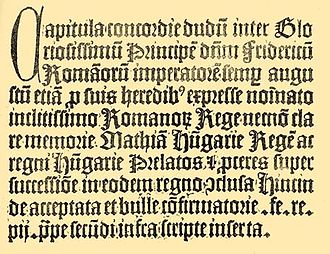 Capitula concordie dudū inter Glo
riosissimū Principē dn̄m Fridericū
Romāorū imperatorē semp̲ augu
stū etiā ꝑ suis heredib⁹ expresse noīato
inclitissimo Romanoꝝ Rege necnō cla
re memorie Mathiā Hūgarie Regē ac
regni Hūgarie Prelatos ⁊ ꝓceres super
successiōe in eodem regno ↄclusa Hincin
de acceptata et bulle cōfirmatorie .fe. re.
pij. ꝓpe secūdi infra scripte inserta.